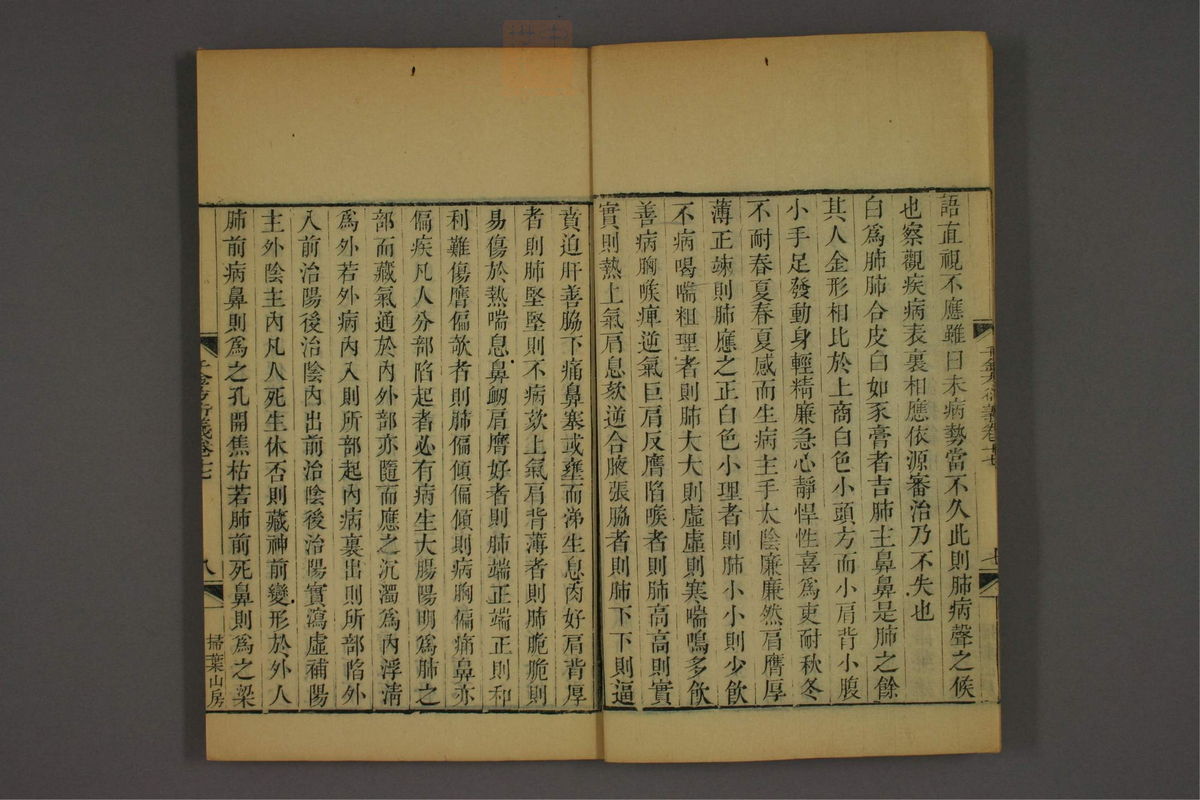 語直視不應雖曰未病勢當不久此則肺病聲之候
也察觀疾病表裏相應依源審治乃不失也
白爲肺肺合皮白如豕膏者吉肺主鼻鼻是肺之餘
其人金形相比於上商白色小頭方面小肩背小腹
小手足發動身輕精廉急心靜悍性喜爲吏耐秋冬
不耐春夏春夏感而生病主手太陰廉廉然肩膺厚
薄正竦則肺應之正白色小理者則肺小小則少飲
不病喝喘粗理者則肺大大則虛虛則寒喘鳴多飲
善病胸喉痺逆氣巨肩反膺陷喉者則肺高高則實
實則熱上氣肩息欬逆合腋張脇者則肺下下則逼
賁迫肝善脇下痛鼻塞或壅而涕生息肉好肩背厚
者則肺堅堅則不病欬上氣肩背薄者則肺脆脆則
易傷於熱喘息鼻衂肩膺好者則肺端正端正則和
利難傷膺偏欹者則肺偏傾偏傾則病胸偏痛鼻亦
偏疾凡人分部陷起者必有病生大腸陽明爲肺之
部而藏氣通於內外部亦隨而應之沉濁爲內浮清
爲外若外病內入則所部起內病裏出則所部陷外
入前治陽後治陰內出前治陰後治陽實瀉虛補陽
主外陰主內凡人死生休否則藏神前變形於外人
肺前病鼻則爲之孔開焦枯若肺前死鼻則爲之梁
八
掃葉山房